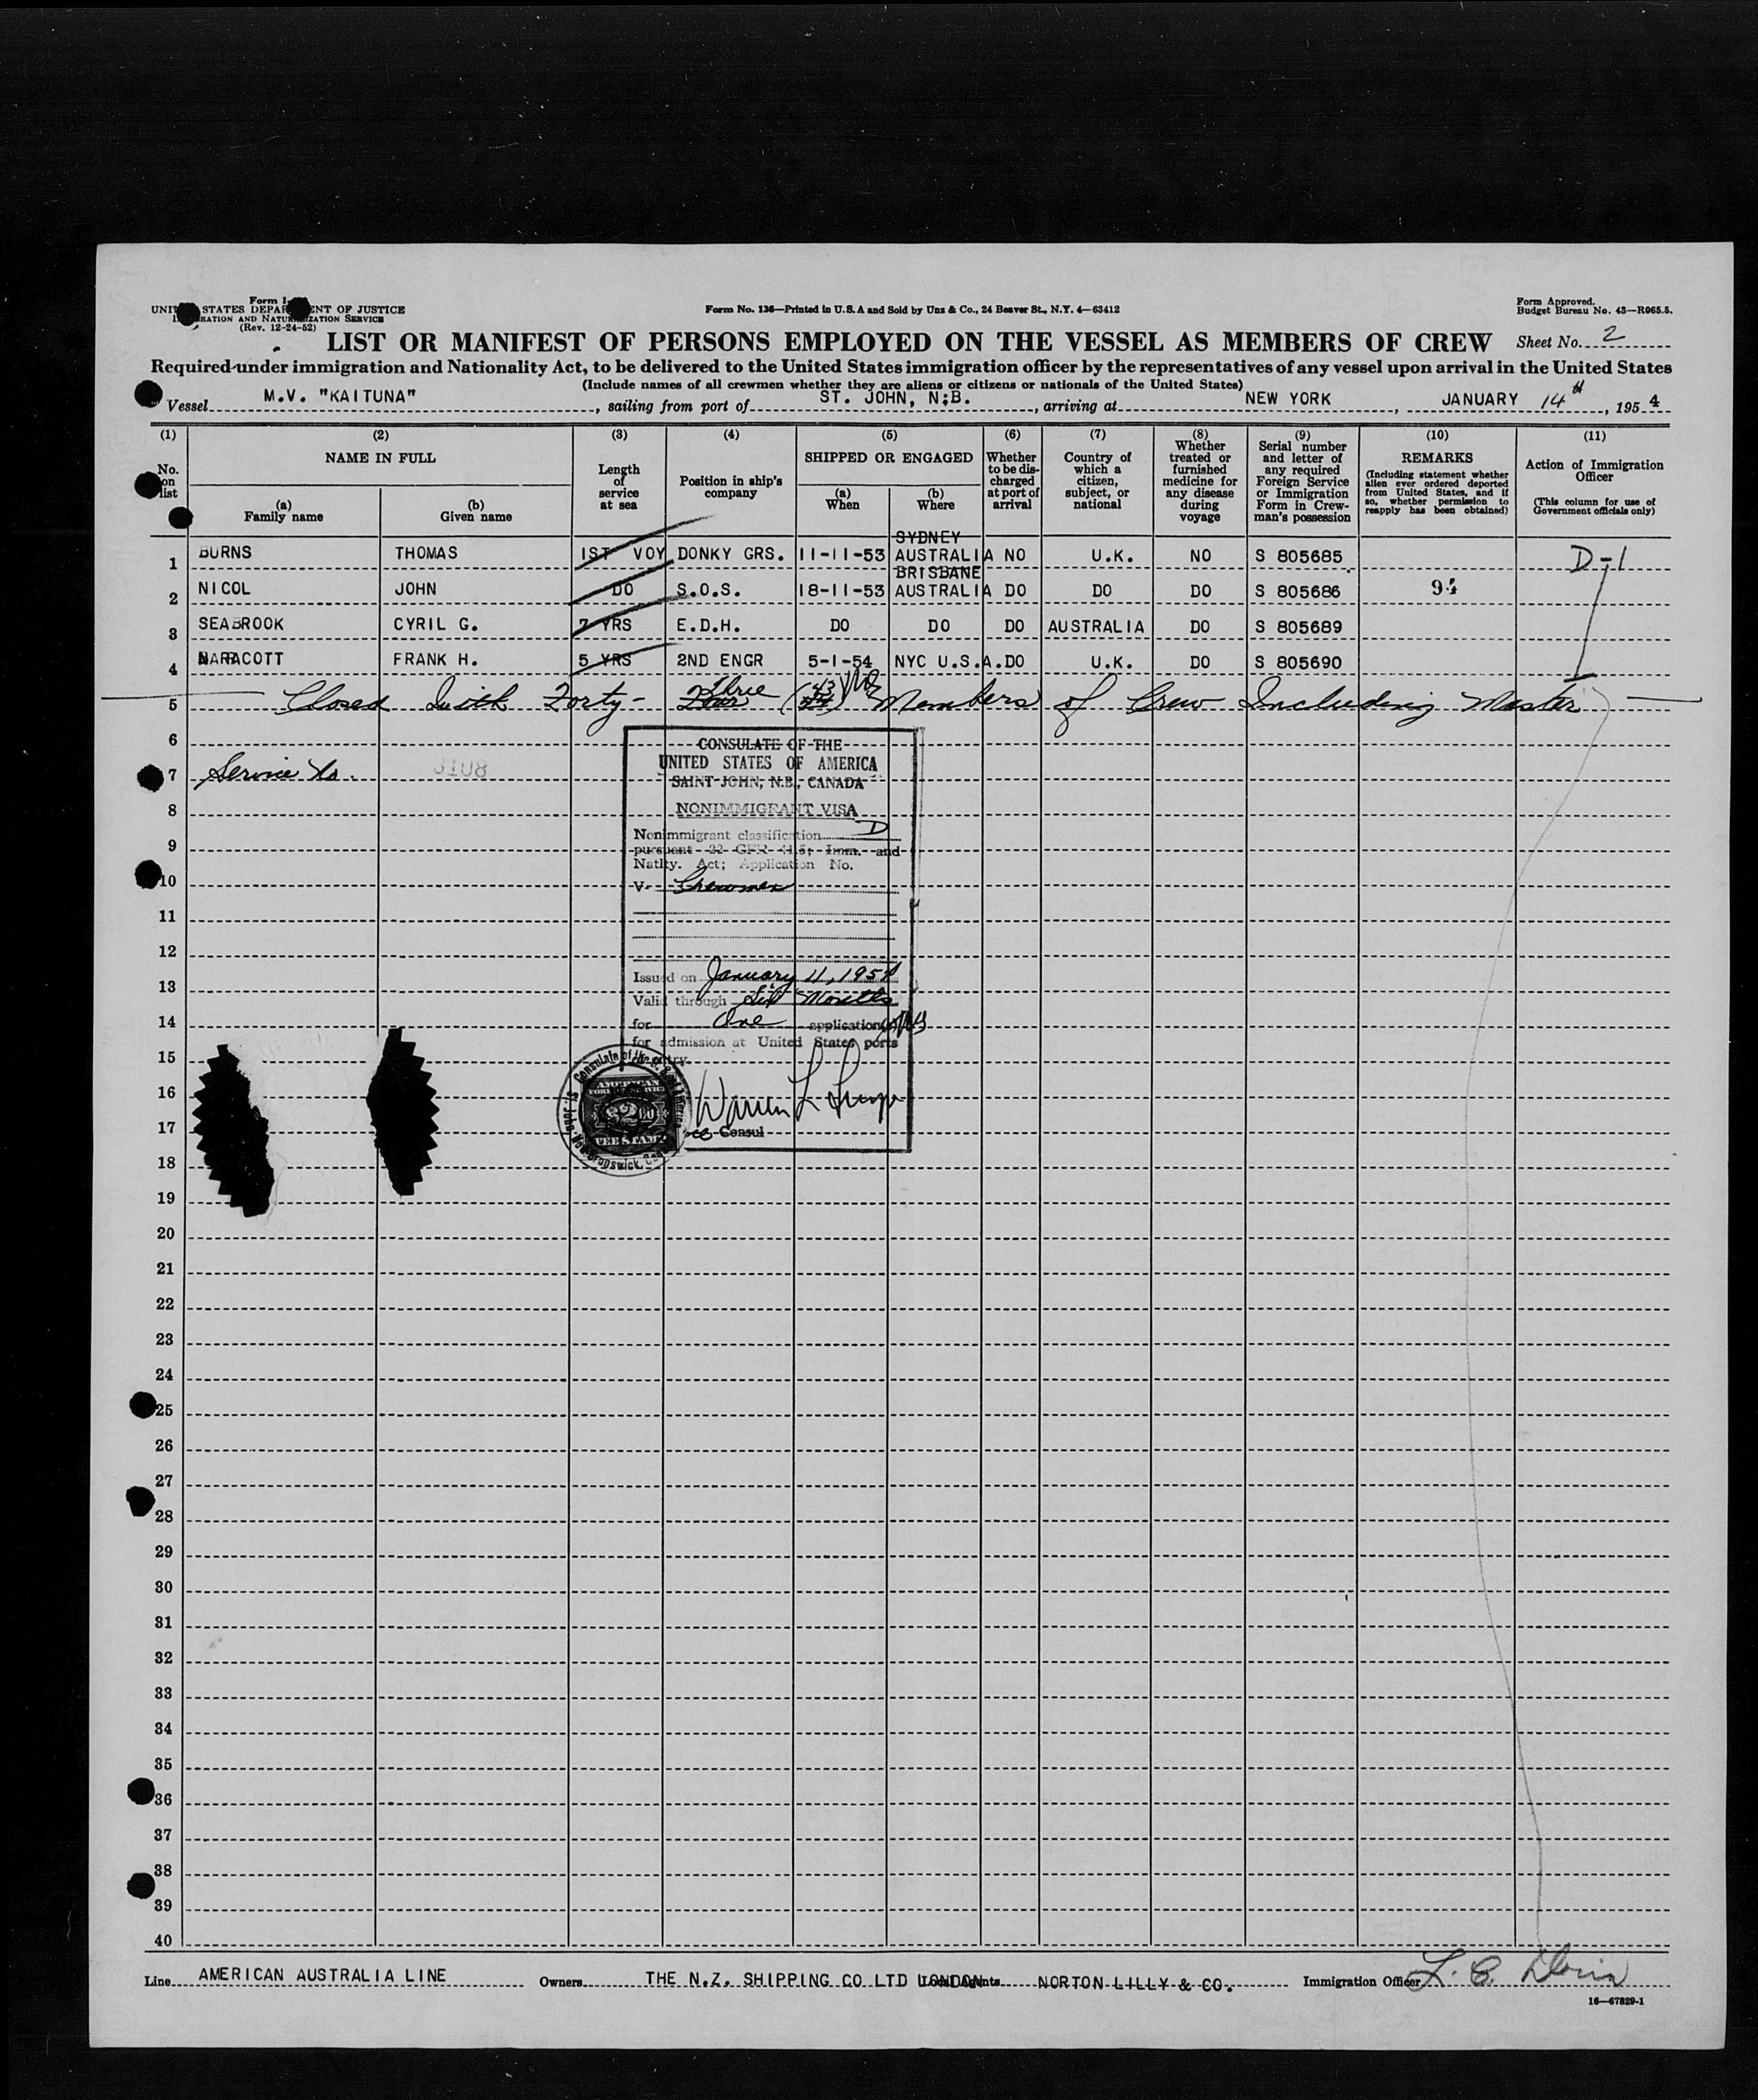 Form I-
UNITED STATES DEPARTMENT OF JUSTICE
IMMIGRATION AND NATURALIZATION SERVICE
(Rev. 12-24-52)
Form No. 136—Printed in U.S.A and Sold by Unz & Co., 24 Beaver St., N.Y. 4—63412
Form Approved.
Budget Bureau No. 43—R065.5.
LIST OR MANIFEST OF PERSONS EMPLOYED ON THE VESSEL AS MEMBERS OF CREW
Sheet No. 2
Required under immigration and Nationality Act, to be delivered to the United States immigration officer by the representatives of any vessel upon arrival in the United States
(Include names of all crewmen whether they are aliens or citizens or nationals of the United States)
Vessel M.V. "KAITUNA", sailing from port of ST. JOHN, N;B., arriving at NEW YORK, JANUARY 14th, 1954
(1) (2) (3) (4) (5) (6) (7) (8) (9) (10) (11)
No. on list
NAME IN FULL
(a) Family name
(b) Given name
Length of service at sea
Position in ship's company
SHIPPED OR ENGAGED
(a) When
(b) Where
Whether to be discharged at port of arrival
Country of which a citizen, subject, or national
Whether treated or furnished medicine for any disease during voyage
Serial number and letter of any required Foreign Service or Immigration Form in Crewman's possession
REMARKS
(Including statement whether alien ever ordered deported from United States, and if so, whether permission to reapply has been obtained)
Action of Immigration Officer
(This column for use of Government officials only)
1 BURNS THOMAS 1ST VOY DONKY GRS. 11-11-53 SYDNEY AUSTRALIA NO U.K. NO S 805685 D-1
2 NICOL JOHN DO S.O.S. 18-11-53 BRISBANE AUSTRALIA DO DO DO S 805686
3 SEABROOK CYRIL G. 7 YRS E.D.H. DO DO DO AUSTRALIA DO S 805689
4 NARACOTT FRANK H. 5 YRS 2ND ENGR 5-1-54 NYC U.S.A. DO U.K. DO S 805690
5 Closed with Forty- Three (43) Members of Crew Including Master
6
7 Service No. 3108
8
9
10
11
12
13
14
15
16
17
18
19
20
21
22
23
24
25
26
27
28
29
30
31
32
33
34
35
36
37
38
39
40
CONSULATE OF THE
UNITED STATES OF AMERICA
SAINT JOHN, N.B., CANADA
NONIMMIGRANT VISA
Nonimmigrant classification D
pursuant 22 CFR 41.5; Imm. and
Natlty. Act; Application No.
V- Crewmen
Issued on January 11, 1954
Valid through Six Months
for One application
for admission at United States ports
of entry.
AMERICAN
FOREIGN SERVICE
$2.00
FEE STAMP
Consul
Line AMERICAN AUSTRALIA LINE Owners THE N.Z. SHIPPING CO LTD LONDON Local Agents NORTON LILLY & CO. Immigration Officer
16—67829-1